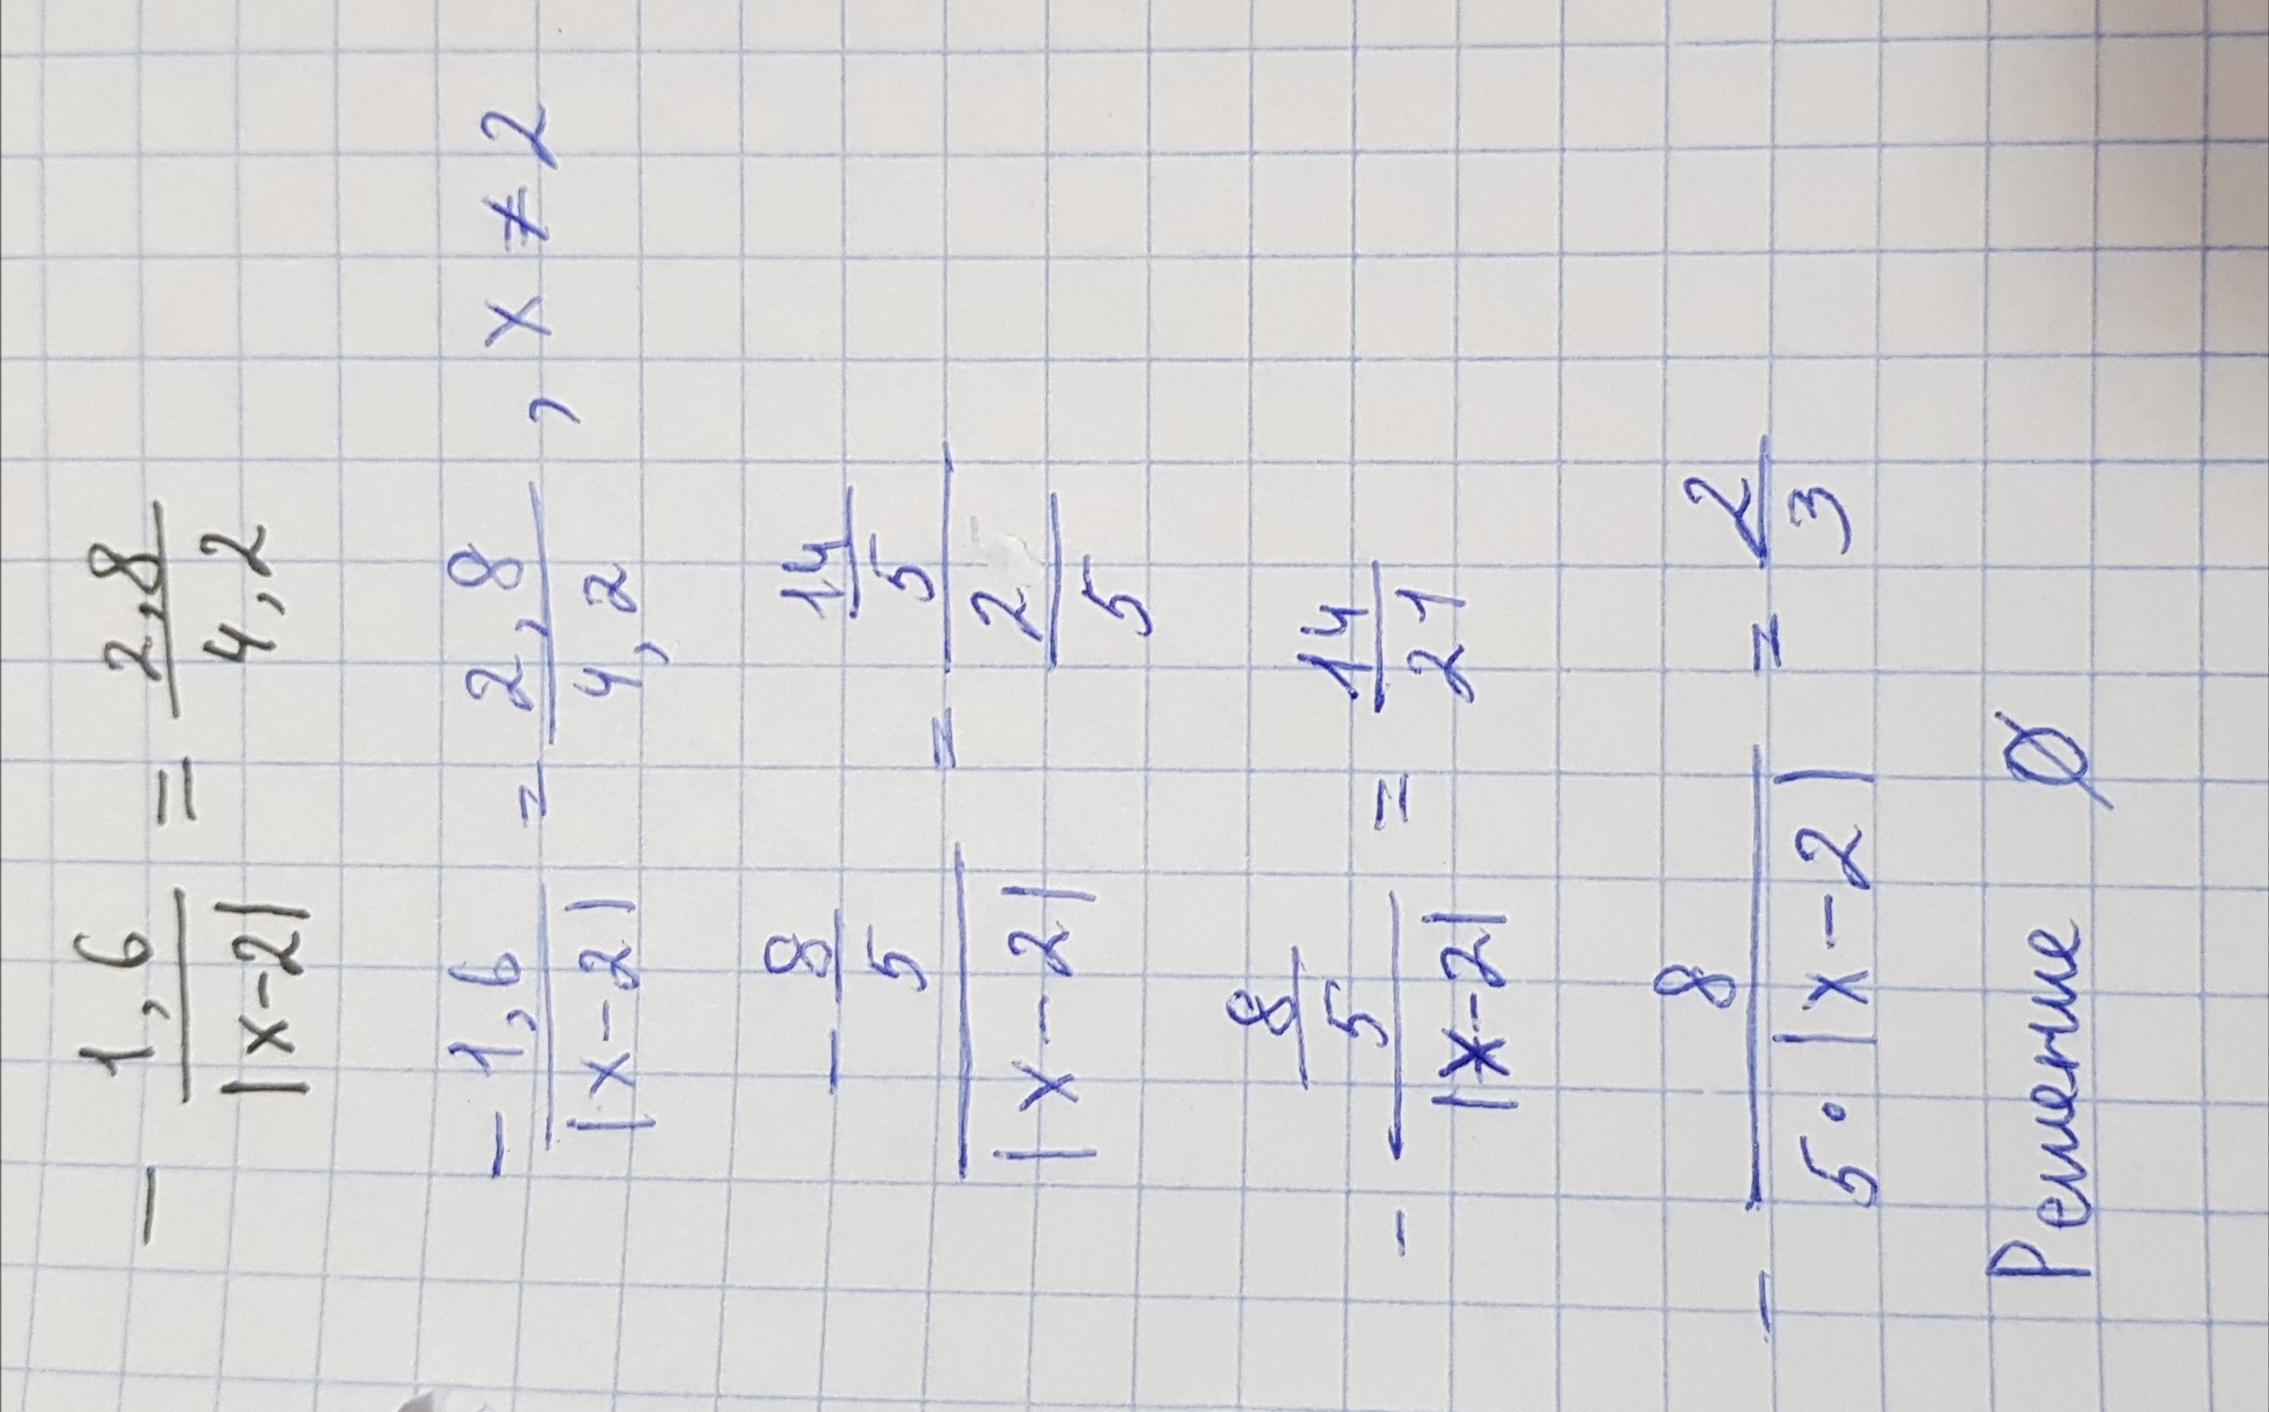 - 1,6/|x-2| = 2,8/4,2
-1,6/|x-2| = 2,8/4,2 , x ≠ 2
(-8/5)/|x-2| = (14/5)/(2/5)
- (8/5)/|x-2| = 14/21
- 8/(5·|x-2|) = 2/3
Решение ∅